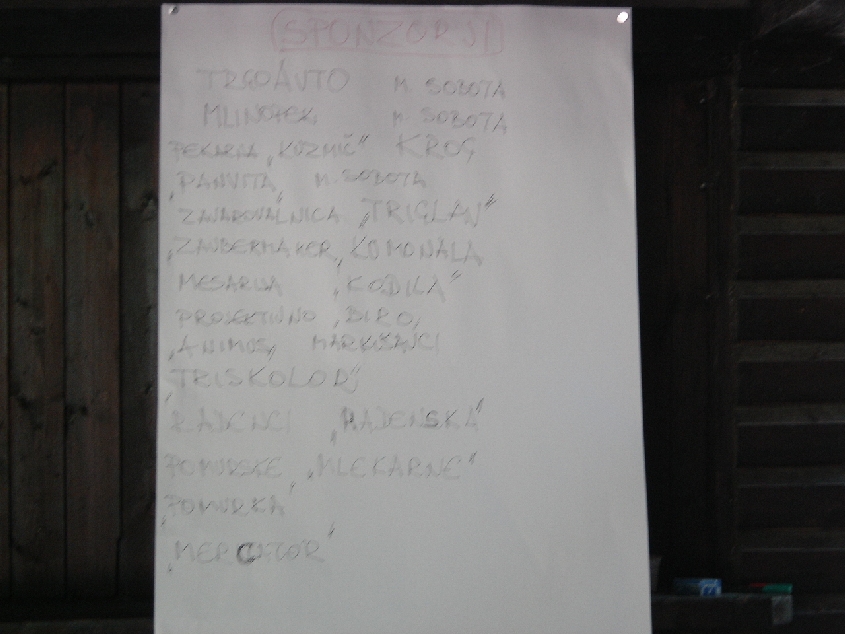 SPONZORJI
TRGOAVTO M. SOBOTA
MLINOPEK M. SOBOTA
PEKARNA "KUZMIČ" KROG
"PANVITA" M. SOBOTA
ZAVAROVALNICA "TRIGLAV"
"ZAUBERMAKER" KOMONALA
MESARIJA "KODILA"
PROJEKTIVNO "BIRO"
"ANIMUS" MARKIŠAVCI
"TRISKOLODJ"
RADENCI "RADENSKA"
POMURSKE "MLEKARNE"
"POMURKA"
"MERCATOR"